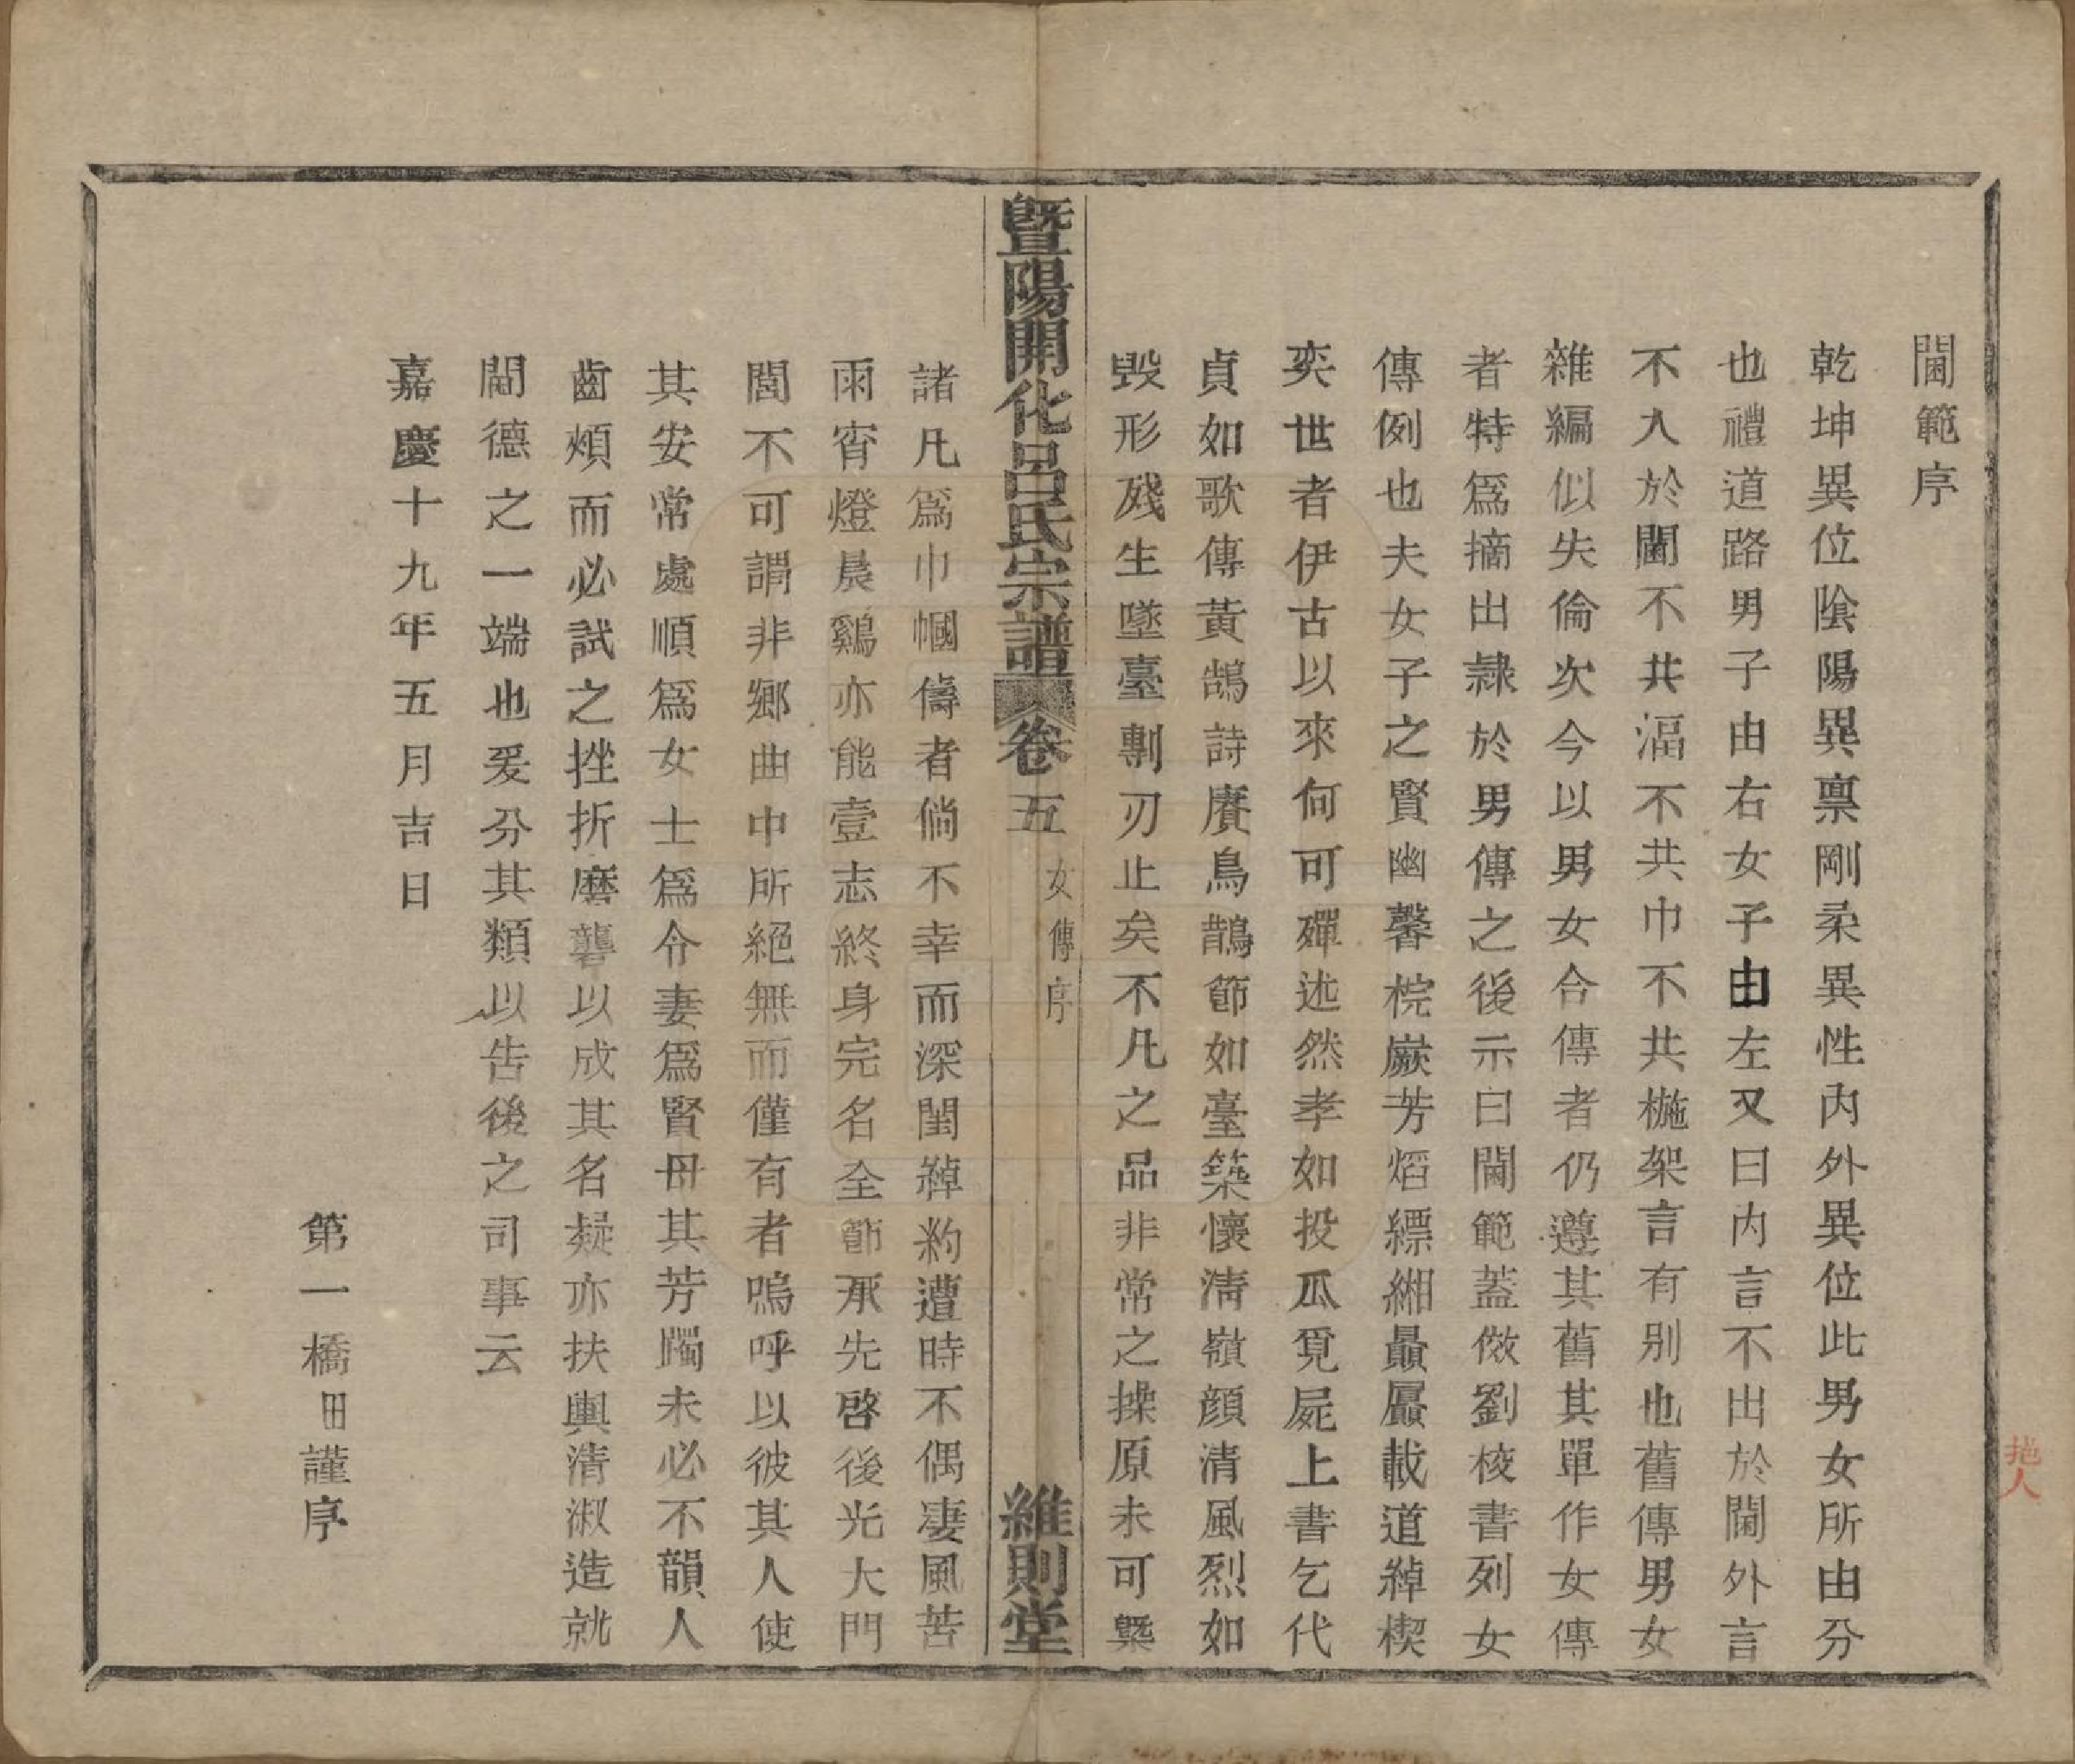 閫範序
乾坤異位陰陽異禀剛柔異性內外異位此男女所由分
也禮道路男子由右女子由左又曰內言不出於閫外言
不入於閫不共湢不共巾不共椸架言有別也舊傳男女
雜編似失倫次今以男女合傳者仍遵其舊其單作女傳
者特爲摘出隷於男傳之後示曰閫範蓋倣劉校書列女
傳例也夫女子之賢幽馨梡嶡芳熖縹緗贔屭載道綽楔
奕世者伊古以來何可殫述然孝如投瓜覓屍上書乞代
貞如歌傳黃鵠詩賡鳥鵲節如臺築懷淸嶺顏清風烈如
毁形殘生墜臺剸刃止矣不凡之品非常之操原未可槩
暨陽開化呂氏宗譜
卷五
女傳序
維則堂
諸凡爲巾幗儔者倘不幸而深閨綽約遭時不偶凄風苦
雨宵燈晨鷄亦能壹志終身完名全節承先啓後光大門
閭不可謂非鄉曲中所絕無而僅有者嗚呼以彼其人使
其安常處順爲女士爲令妻爲賢母其芳躅未必不韻人
齒頰而必試之挫折磨礱以成其名疑亦扶輿清淑造就
閫德之一端也爰分其類以告後之司事云
嘉慶十九年五月吉日
第一橋田謹序